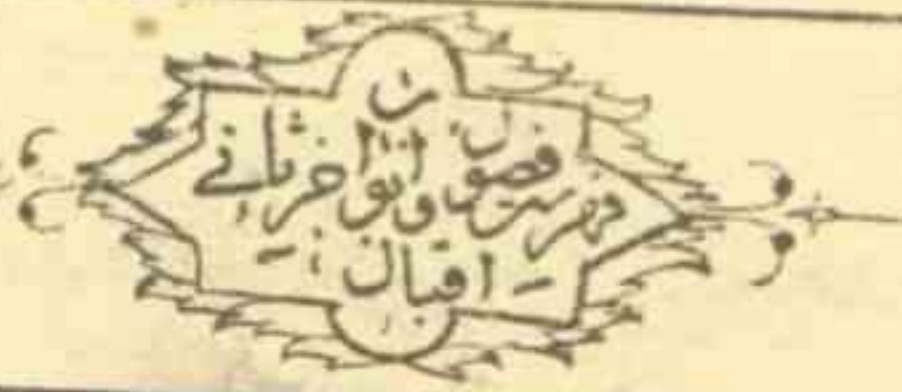 فهرست فصول و ابواب جزء ثانے
اقبال